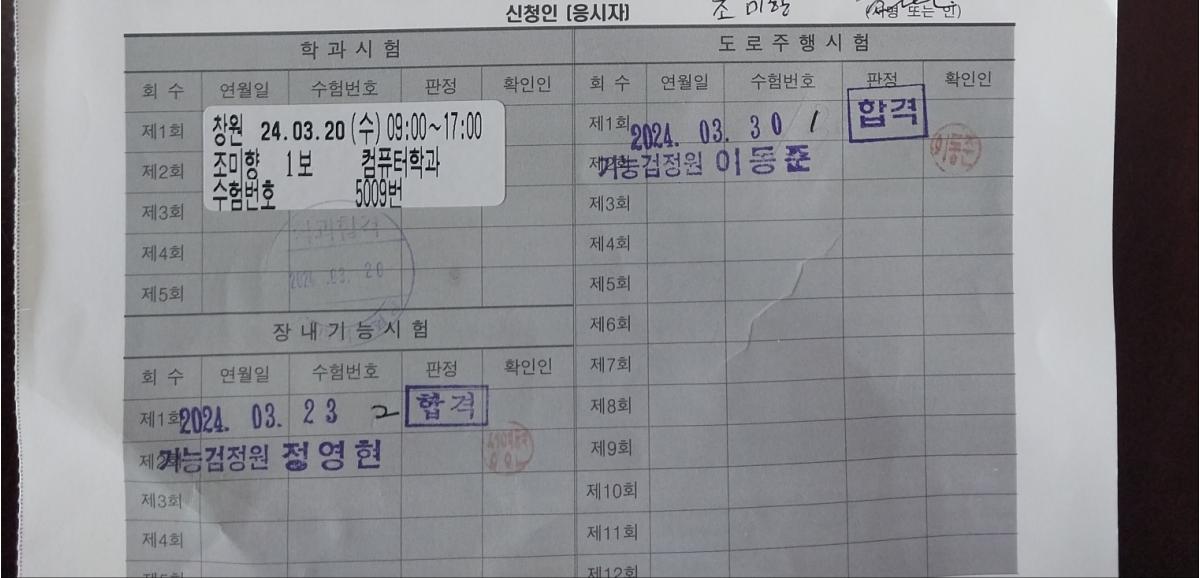 신청인 (응시자) 조미향 (서명 또는 인)
학과시험
회 수 연월일 수험번호 판정 확인인
제1회
창원 24.03.20 (수) 09:00~17:00
제2회
조미향 1보 컴퓨터학과
수험번호 5009번
제3회
제4회
학과합격
제5회
2024 .03. 20
장내기능시험
회 수 연월일 수험번호 판정 확인인
제1회 2024. 03. 23 2 합격
제2회 기능검정원 정영현
제3회
제4회
제5회
도로주행시험
회 수 연월일 수험번호 판정 확인인
제1회 2024. 03. 30 1 합격
기능검정원 이동준 이동준
제3회
제4회
제5회
제6회
제7회
제8회
제9회
제10회
제11회
제12회